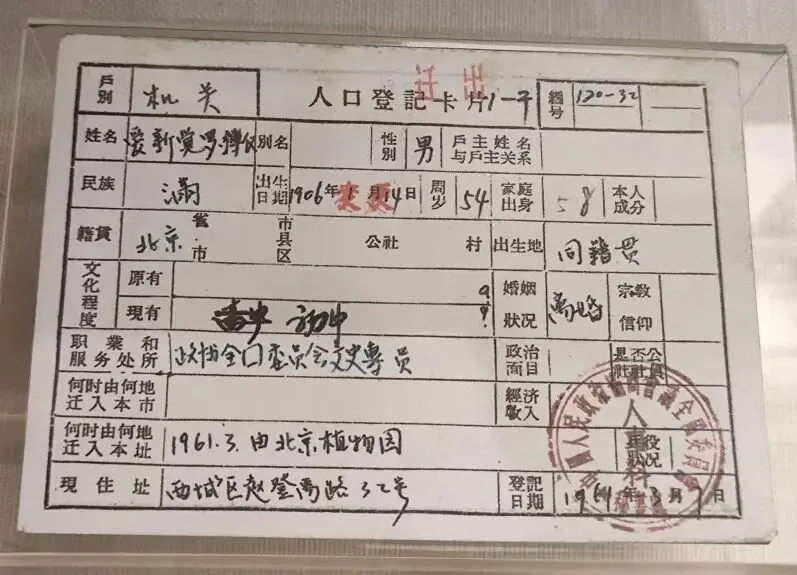 戶別 机关 人口登記卡片 迁出 編号 120-32
姓名 爱新觉罗 別名 性別 男 戶主姓名与戶主关系
民族 滿 出生日期 1906年1月14日 周岁 54 家庭出身 本人成分
籍貫 北京 省市 市县区 公社 村 出生地 同籍贯
文化程度 原有 婚姻狀况 离婚 宗敎信仰
現有 初中
职業和服务处所 政协全囗委员会文史專员 政治面目 是否公社社員
何时由何地迁入本市 經济收入
何时由何地迁入本址 1961.3.由北京植物园 兵役狀况
現住址 西城区赵登禹路32号 登記日期 年3月7日
人事科